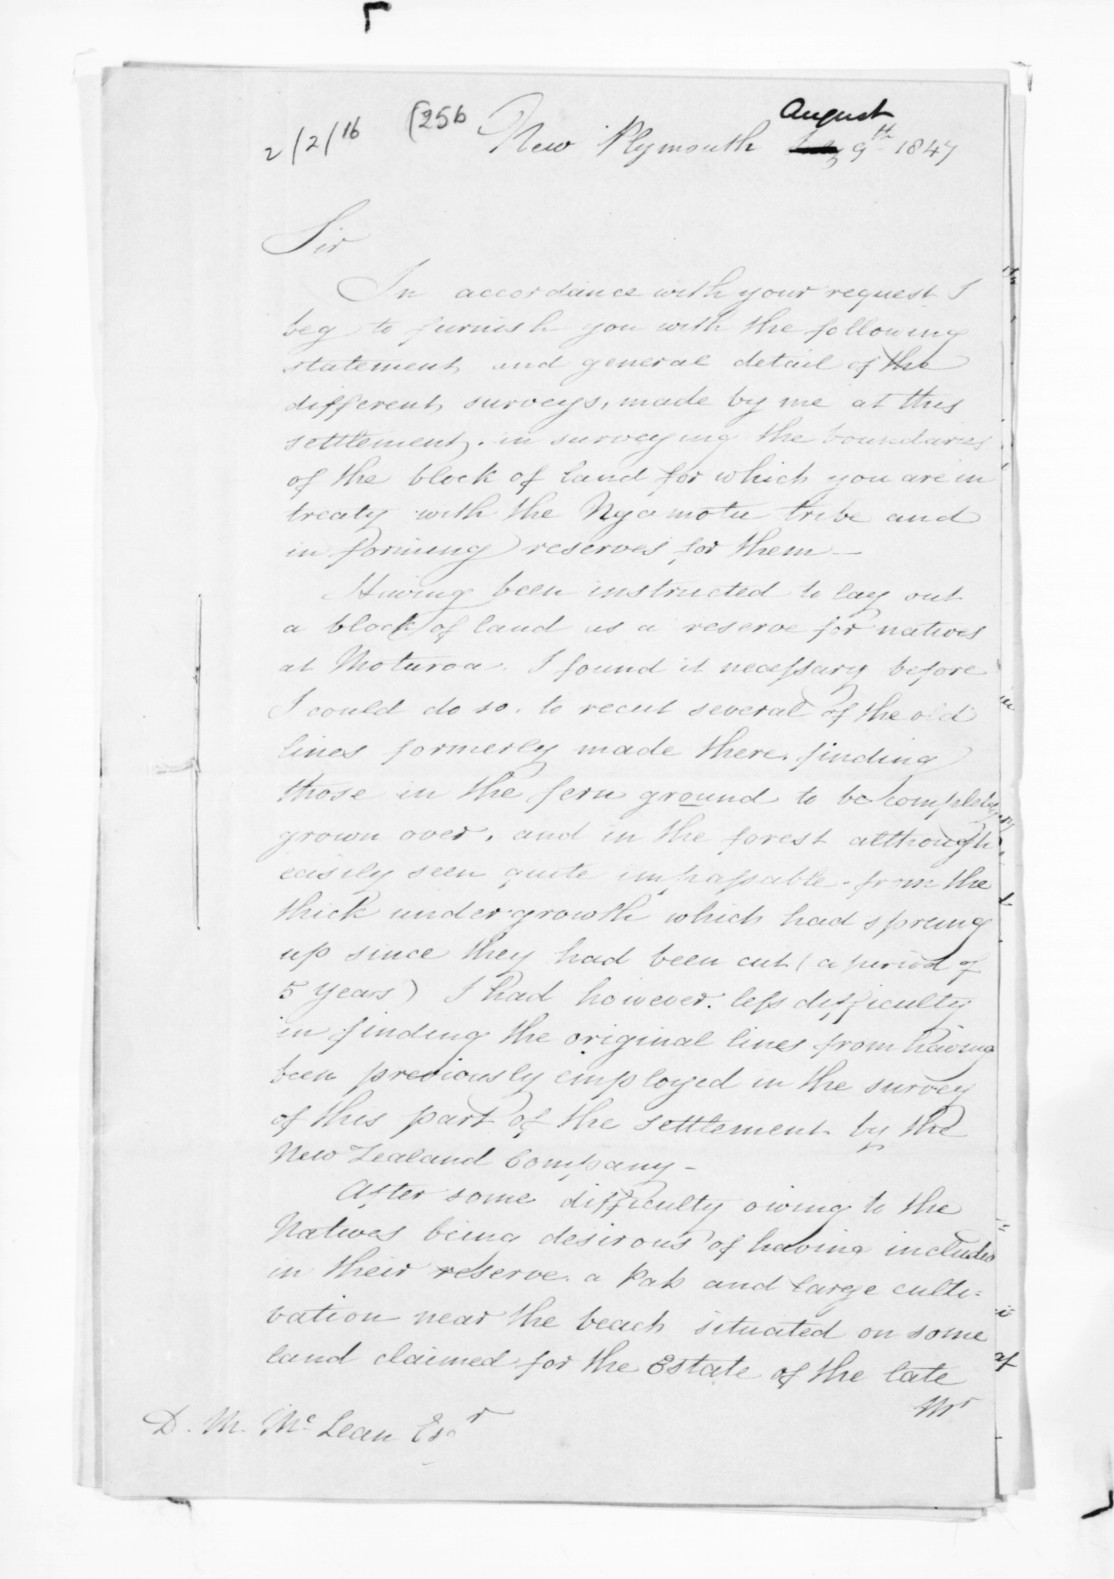 2/2/16 (256 New Plymouth August 9th 1847
Sir
In accordance with your request I
beg to furnish you with the following
statement and general detail of the
different surveys, made by me at this
settlement, in surveying the boundaries
of the block of land for which you are in
treaty with the Ngamotu tribe and
in forming reserves for them —
Having been instructed to lay out
a block of land as a reserve for natives
at Moturoa. I found it necessary before
I could do so, to recut several of the old
lines formerly made there, finding
those in the fern ground to be completely
grown over, and in the forest although
easily seen quite impassable, from the
thick undergrowth which had sprung
up since they had been cut (a period of
5 years) I had however, less difficulty
in finding the original lines from having
been previously employed in the survey
of this part of the settlement by the
New Zealand Company –
After some difficulty owing to the
Natives being desirous of having included
in their reserve a Pah and large culti=
vation near the beach situated on some
land claimed for the Estate of the late
Mr
D. M. McLean Esqr